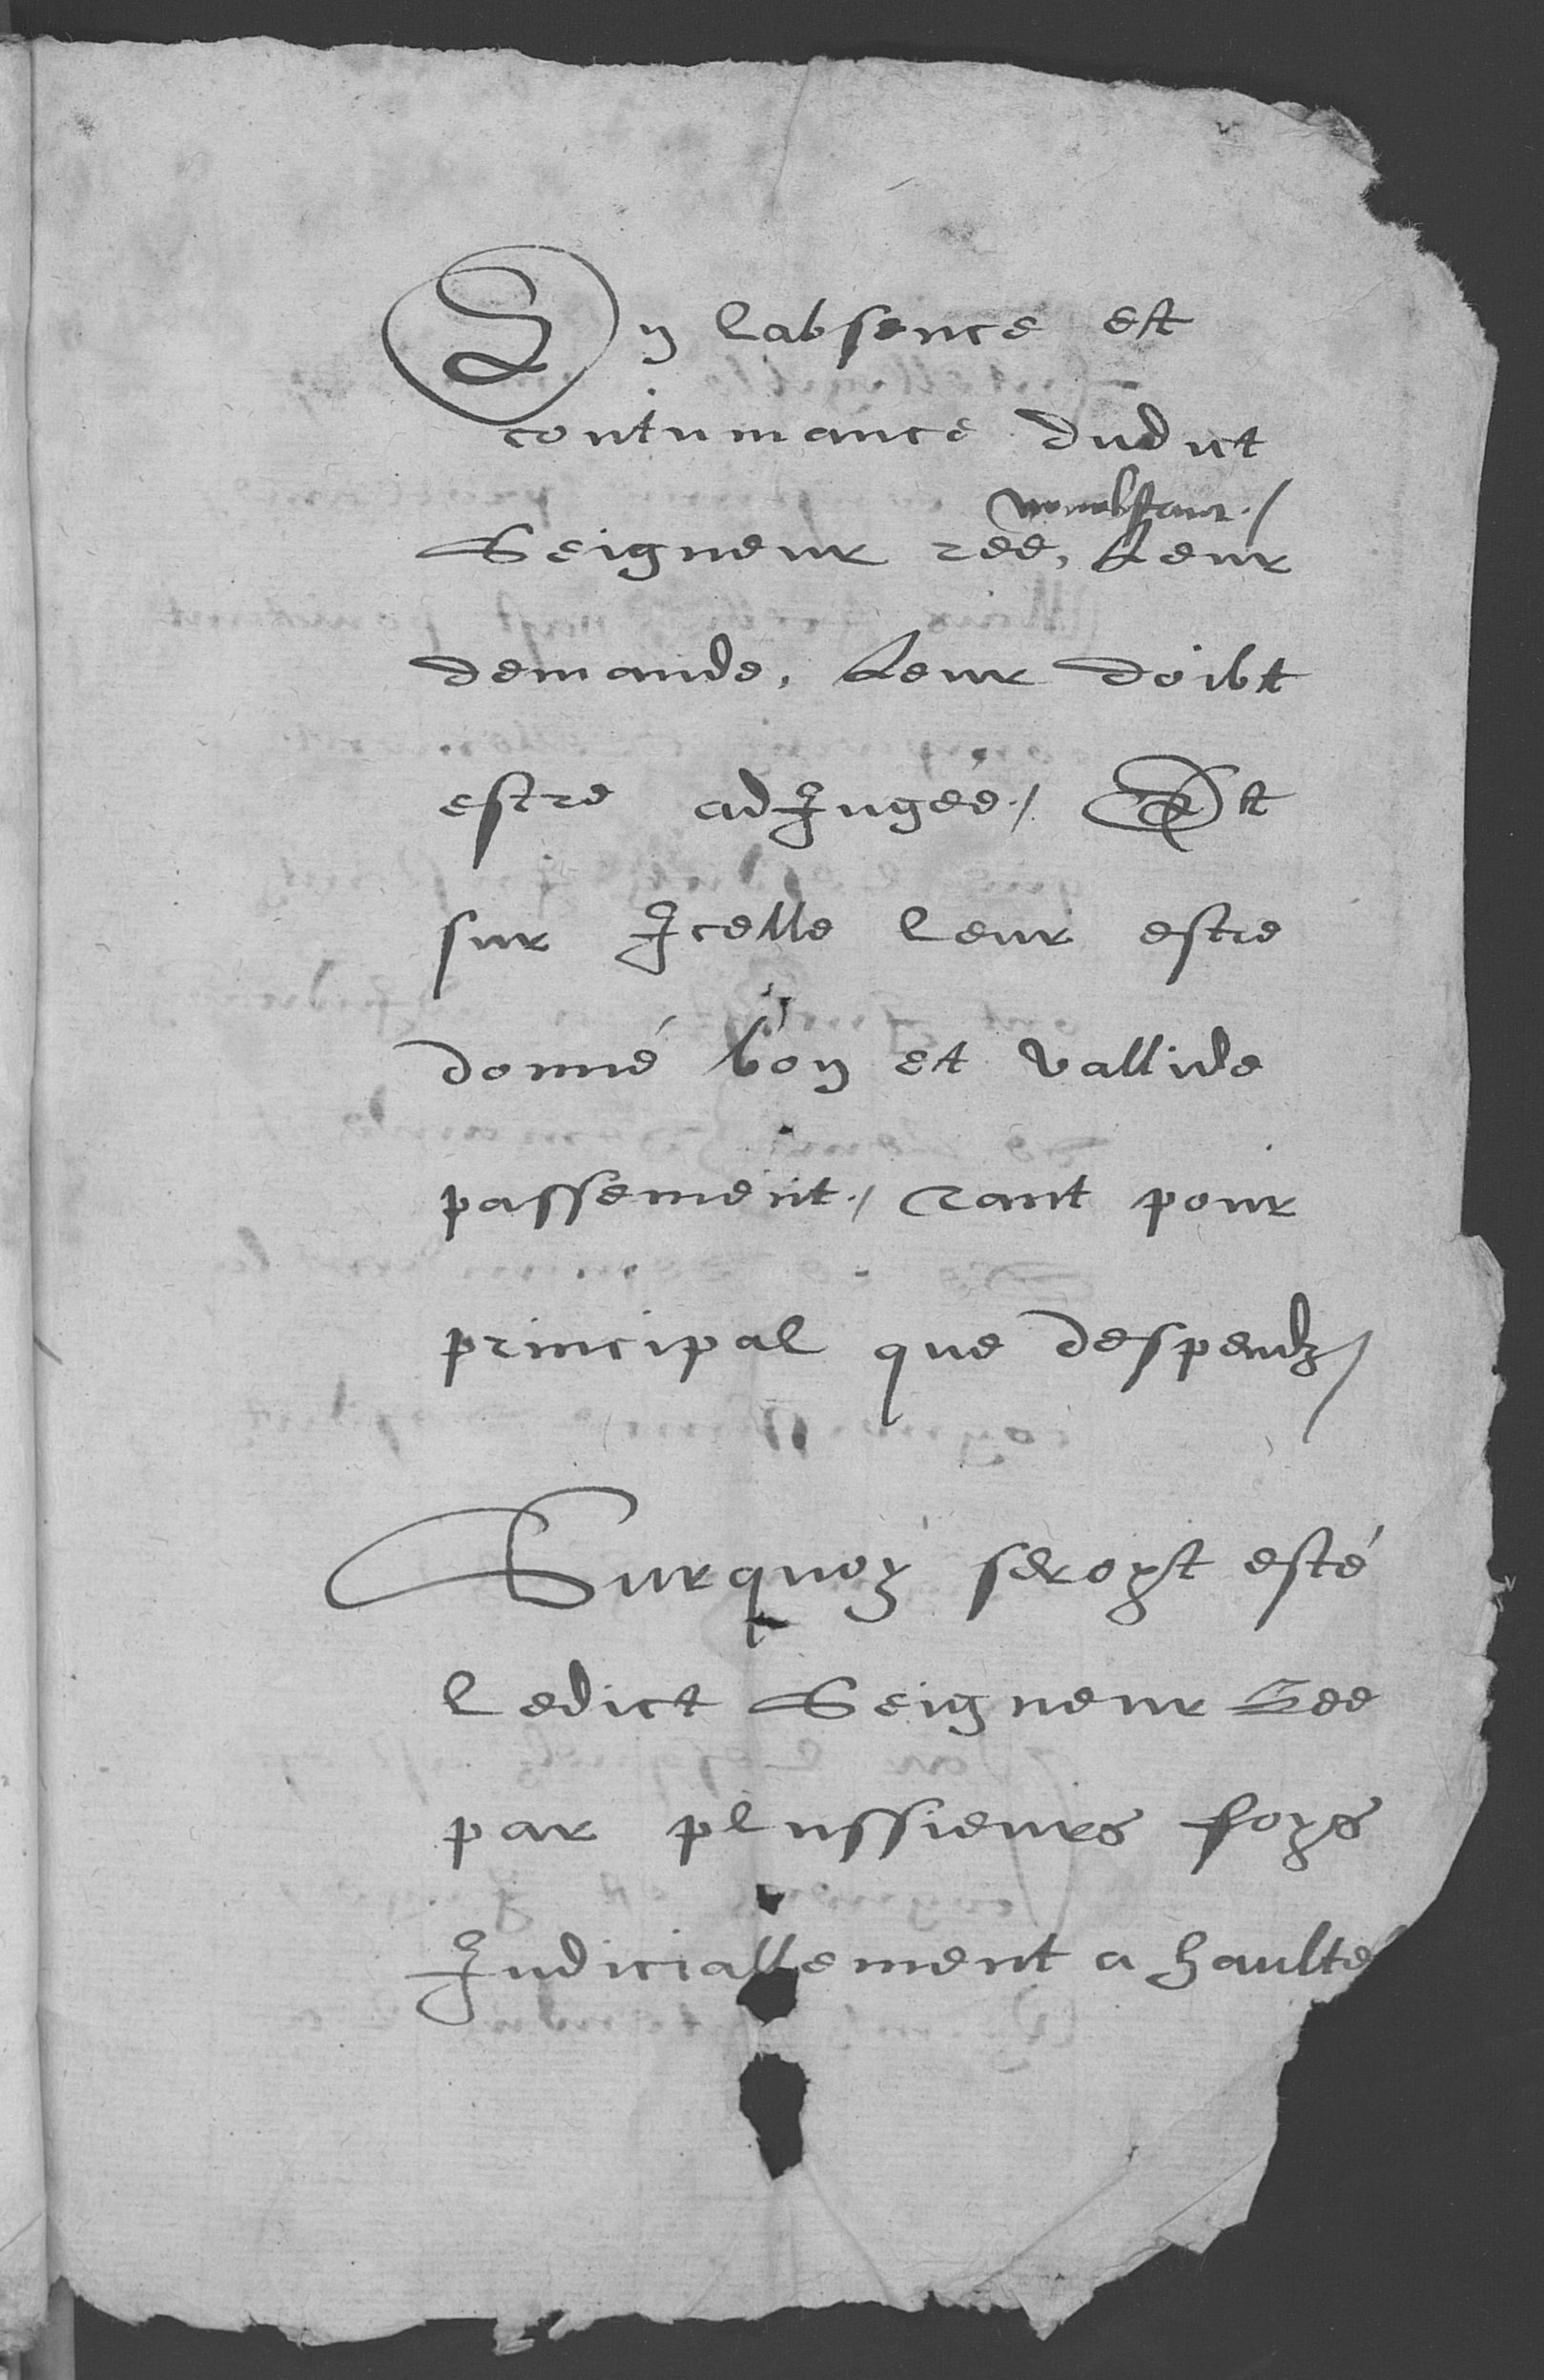 En labsence et
contumance dudict
nonobstant./
Seigneur rée, Leur
demande, Leur doibt
estre adJugée./ Et
sur Jcelle leur estre
donné bon et vallide
passement./ Tant pour
principal que despendz/
Surquoy seroyt esté
ledict Seigneur Rée
par plussieurs foys
Judiciallement a haulte